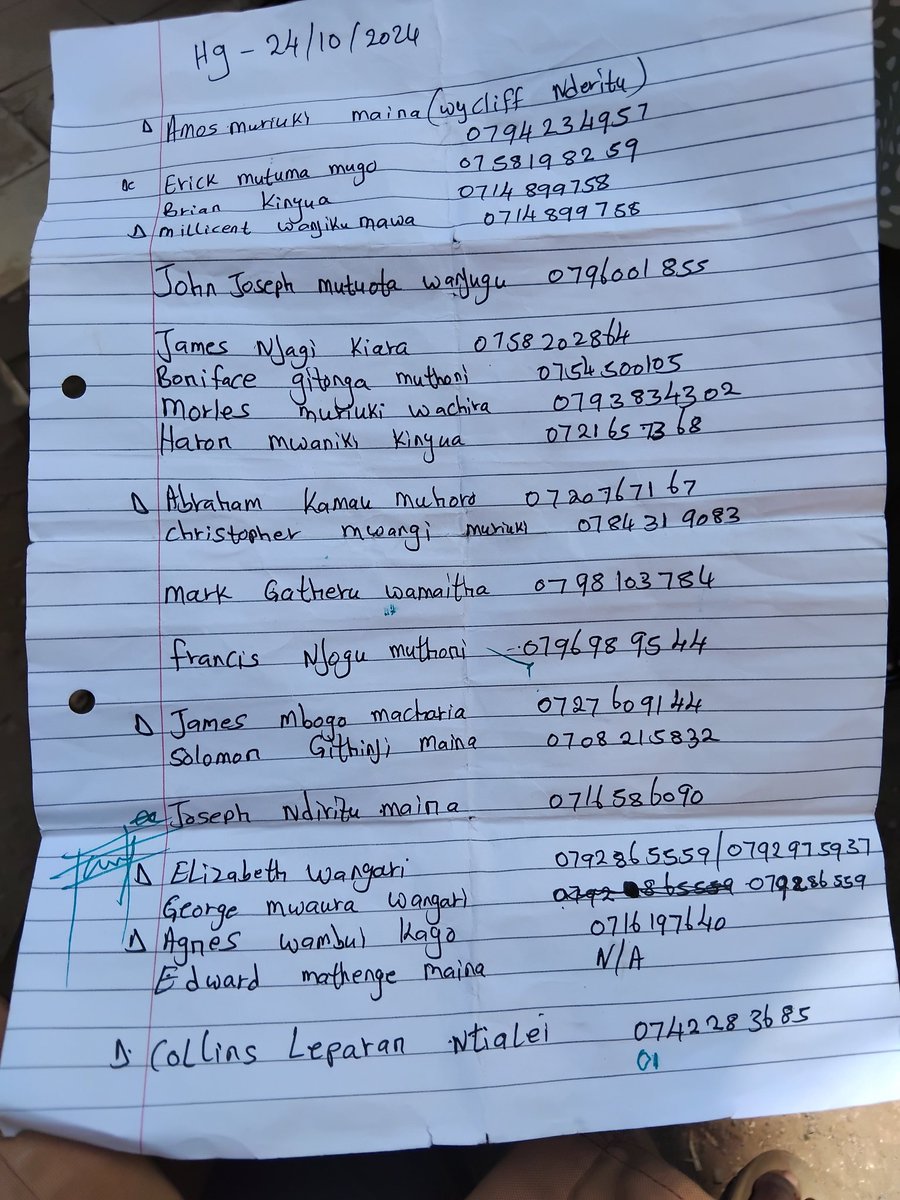 Hg - 24/10/2024
Δ Amos muriuki maina (wycliff Nderitu)
0794234957
Erick mutuma mugo 0758198259
Brian Kinyua 0714 899758
Δ millicent wanjiku mawa 0714 899 758
John Joseph mutuota wanjugu 0796001855
James Njagi Kiara 0758202864
Boniface gitonga muthoni 0754500105
Morles muriuki wachira 0793834302
Haron mwaniki Kinyua 0721657368
Δ Abraham Kamau muhoro 0720767167
christopher mwangi muriuki 0784319083
mark Gatheru wamaitha 0798103784
francis Njogu muthoni 0796989544
Δ James mbogo macharia 0727609144
Solomon Githinji maina 0708215832
Joseph Ndiritu maina 0716586090
Δ Elizabeth wangari 0792865559/0792975937
George mwaura wangari 0792865559 079286559
Δ Agnes wambui Kago 0716197640
Edward mathenge maina N/A
Δ Collins Leparan Ntialei 0742283685
01